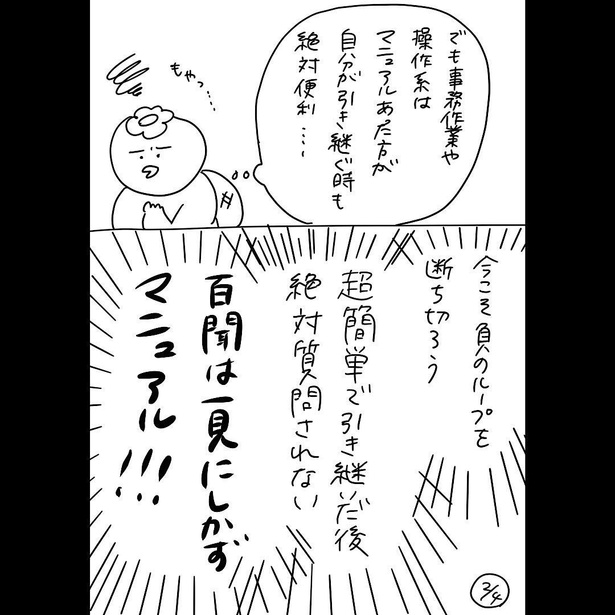 でも事務作業や
操作系は
マニュアルあった方が
自分が引き継ぐ時も
絶対便利…
もやっ…
今こそ負のループを
断ち切ろう
超簡単で引き継いだ後
絶対質問されない
百聞は一見にしかず
マニュアル!!!
2/4